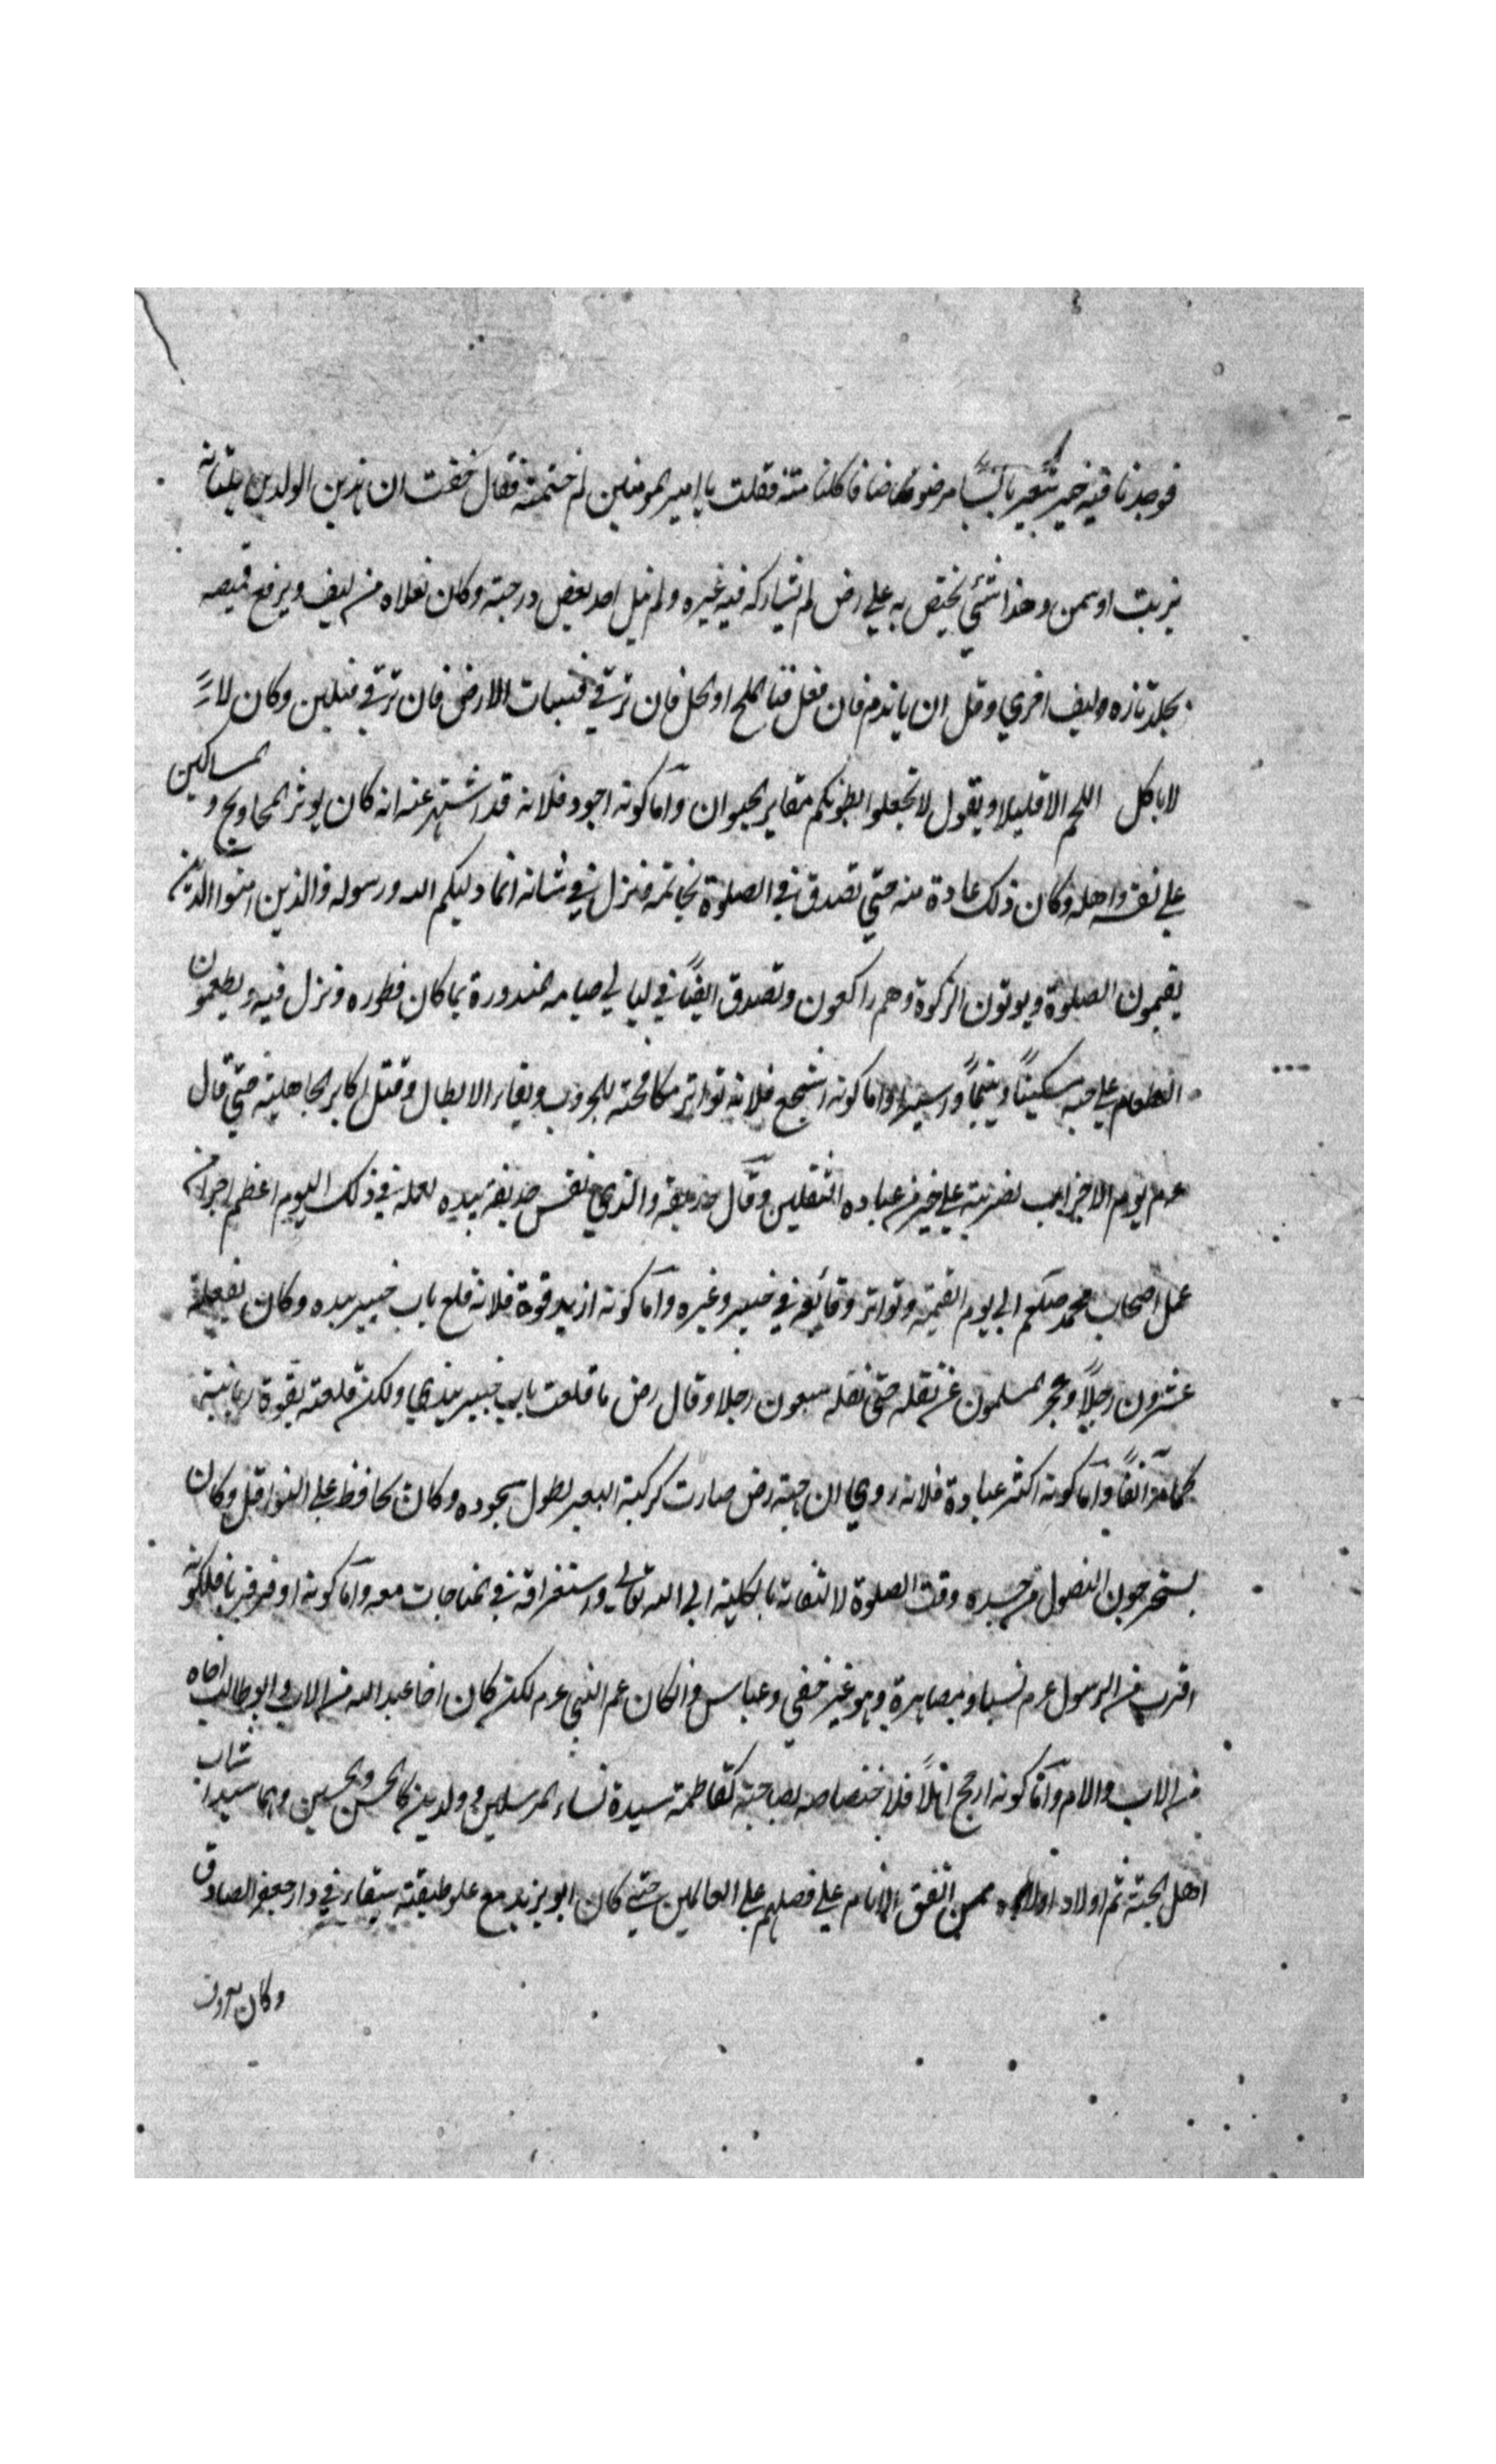 فوجدنا فيه خبز شعير يابسا مرضوضا فاكلنا منه فقلت يا امير المومنين لم ختمته فقال خفت ان هذين الولدين يلتانه
بزيت او سمن وهذا شئي يختص به علي رض لم يشاركه فيه غيره ولم ينل احد بعض درجته وكان نعلاه من ليف ويرقع قميصه
بجلد تارة وليف اخري وقل ان ياتدم فان فعل فبالملح او بالخل فان ترقي فبنبات الارض فان ترقي فبلبن وكان
لا ياكل اللحم الا قليلا ويقول لا تجعلوا بطونكم مقابر الحيوان واما كونه اجود فلانه قد اشتهر عنه انه كان يوثر المحاويج و المساكين
علي نفسه واهله وكان ذلك عادة منه حتي تصدق في الصلوة بخاتمه فنزل في شانه انما وليكم الله ورسوله والذين امنوا الذين
يقيمون الصلوة ويوتون الزكوة وهم راكعون وتصدق ايضًا في ليالي صيامه المنذورة بما كان فطوره ونزل فيه ويطعمون
الطعام علي حبه مسكينًا ويتيمًا واسيرا واما كونه اشجع فلانه تواتر مكافحته للحروب ولقاء الابطال وقتل اكابر الجاهلية حتي قال
عم يوم الاحزاب لضربة علي خير من عبادة الثقلين وقال حذيفة والذي نفس حذيفة بيده لعمله في ذلك اليوم اعظم اجرا من
عمل اصحاب محمد صلعم الي يوم القيمة وتواتر وقائعه في خيبر وغيره واما كونه ازيد قوة فلانه قلع باب خيبر بيده وكان
عشرون رجلاً وعجز المسلمون عن نقله حتي نقله سبعون رجلا وقال رض ما قلعت باب خيبر بيدي ولكن قلعته بقوة ربانية
كما مر آنفًا واما كونه اكثر عبادة فلانه روي ان جبهته رض صارت كركبة البعير لطول سجوده وكان يحافظ علي النوافل وكان
يستخرجون النصول من جسده وقت الصلوة لالتفاته بالكلية الي الله تعالي واستغراقه في المناجات معه واما كونه اوفر قربا فلكونه
اقرب من الرسول عم نسبا ومصاهرة وهو غير خفي وعباس وان كان عم النبي عم لكن كان اخا عبد الله من الاب وابو طالب اخاه
من الاب والام واما كونه ارجح اهلاً فلاختصاصه بصاحبة كفاطمة سيدة نساء المرسلين وولدين كالحسن والحسين وهما سيدا شباب
اهل الجنة ثم اولاد اولاده ممن اتفق الانام علي فضلهم علي العالمين حتي كان ابو يزيد مع علو طبقته سقاء في دار جعفر الصادق
وكان معروف